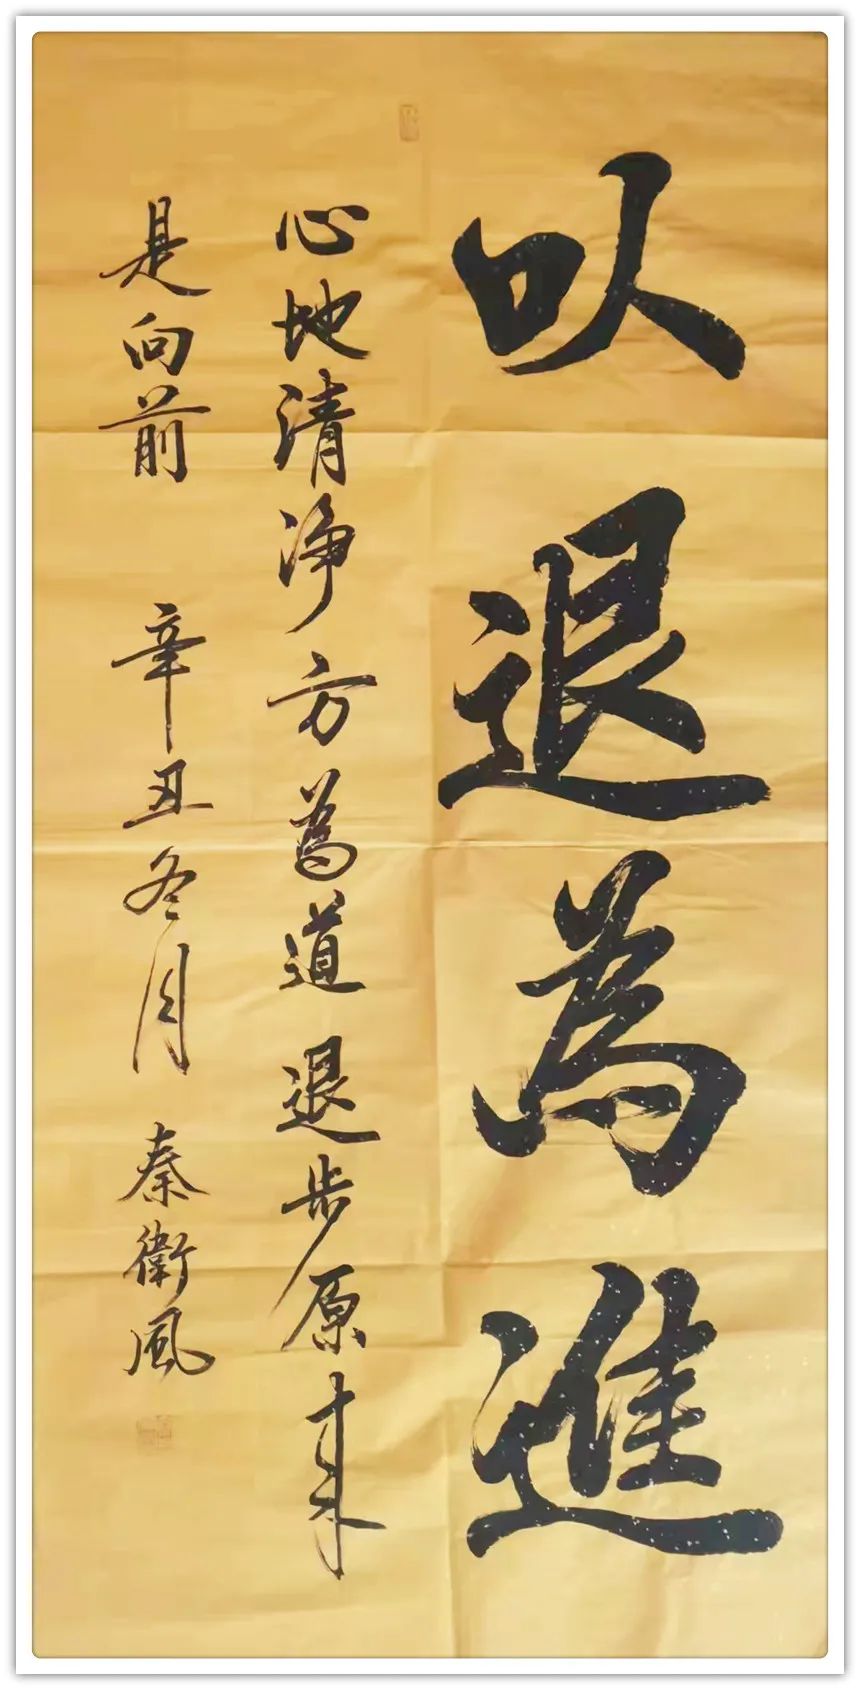 以退為進
心地清净方為道退步原来
是向前 辛丑冬月 秦衛風